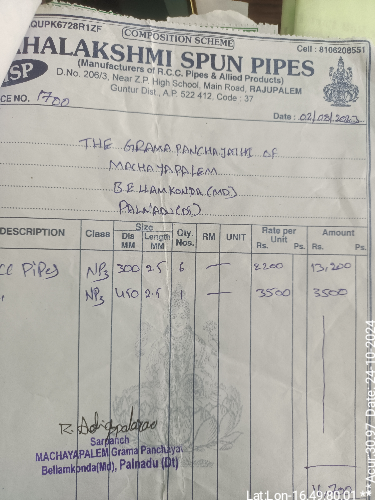 QUPK6728R1ZF
COMPOSITION SCHEME
Cell : 8106208551
HALAKSHMI SPUN PIPES
(Manufacturers of R.C.C. Pipes & Allied Products)
SP
D.No. 206/3, Near Z.P. High School, Main Road, RAJUPALEM
Guntur Dist., A.P. 522 412. Code : 37
CE NO. 1700
Date : 02/08/2023
THE GRAMA PANCHAJATHI OF
MACHAYAPALEM
BELLAMKONDA (MD)
PALNADU (Dt)
DESCRIPTION Class Size Dia MM Length MM Qty. Nos. RM UNIT Rate per Unit Rs. Ps. Amount Rs. Ps.
CC Pipes NP3 300 2.5 6 — 2200 13,200
" NP3 450 2.5 1 — 3500 3500
Sarpanch
MACHAYAPALEM Grama Panchaya
Bellamkonda(Md), Palnadu (Dt)
16,700
Lat:Lon-16.49:80.01
***Acur:30.97 Date: 24-10-2024